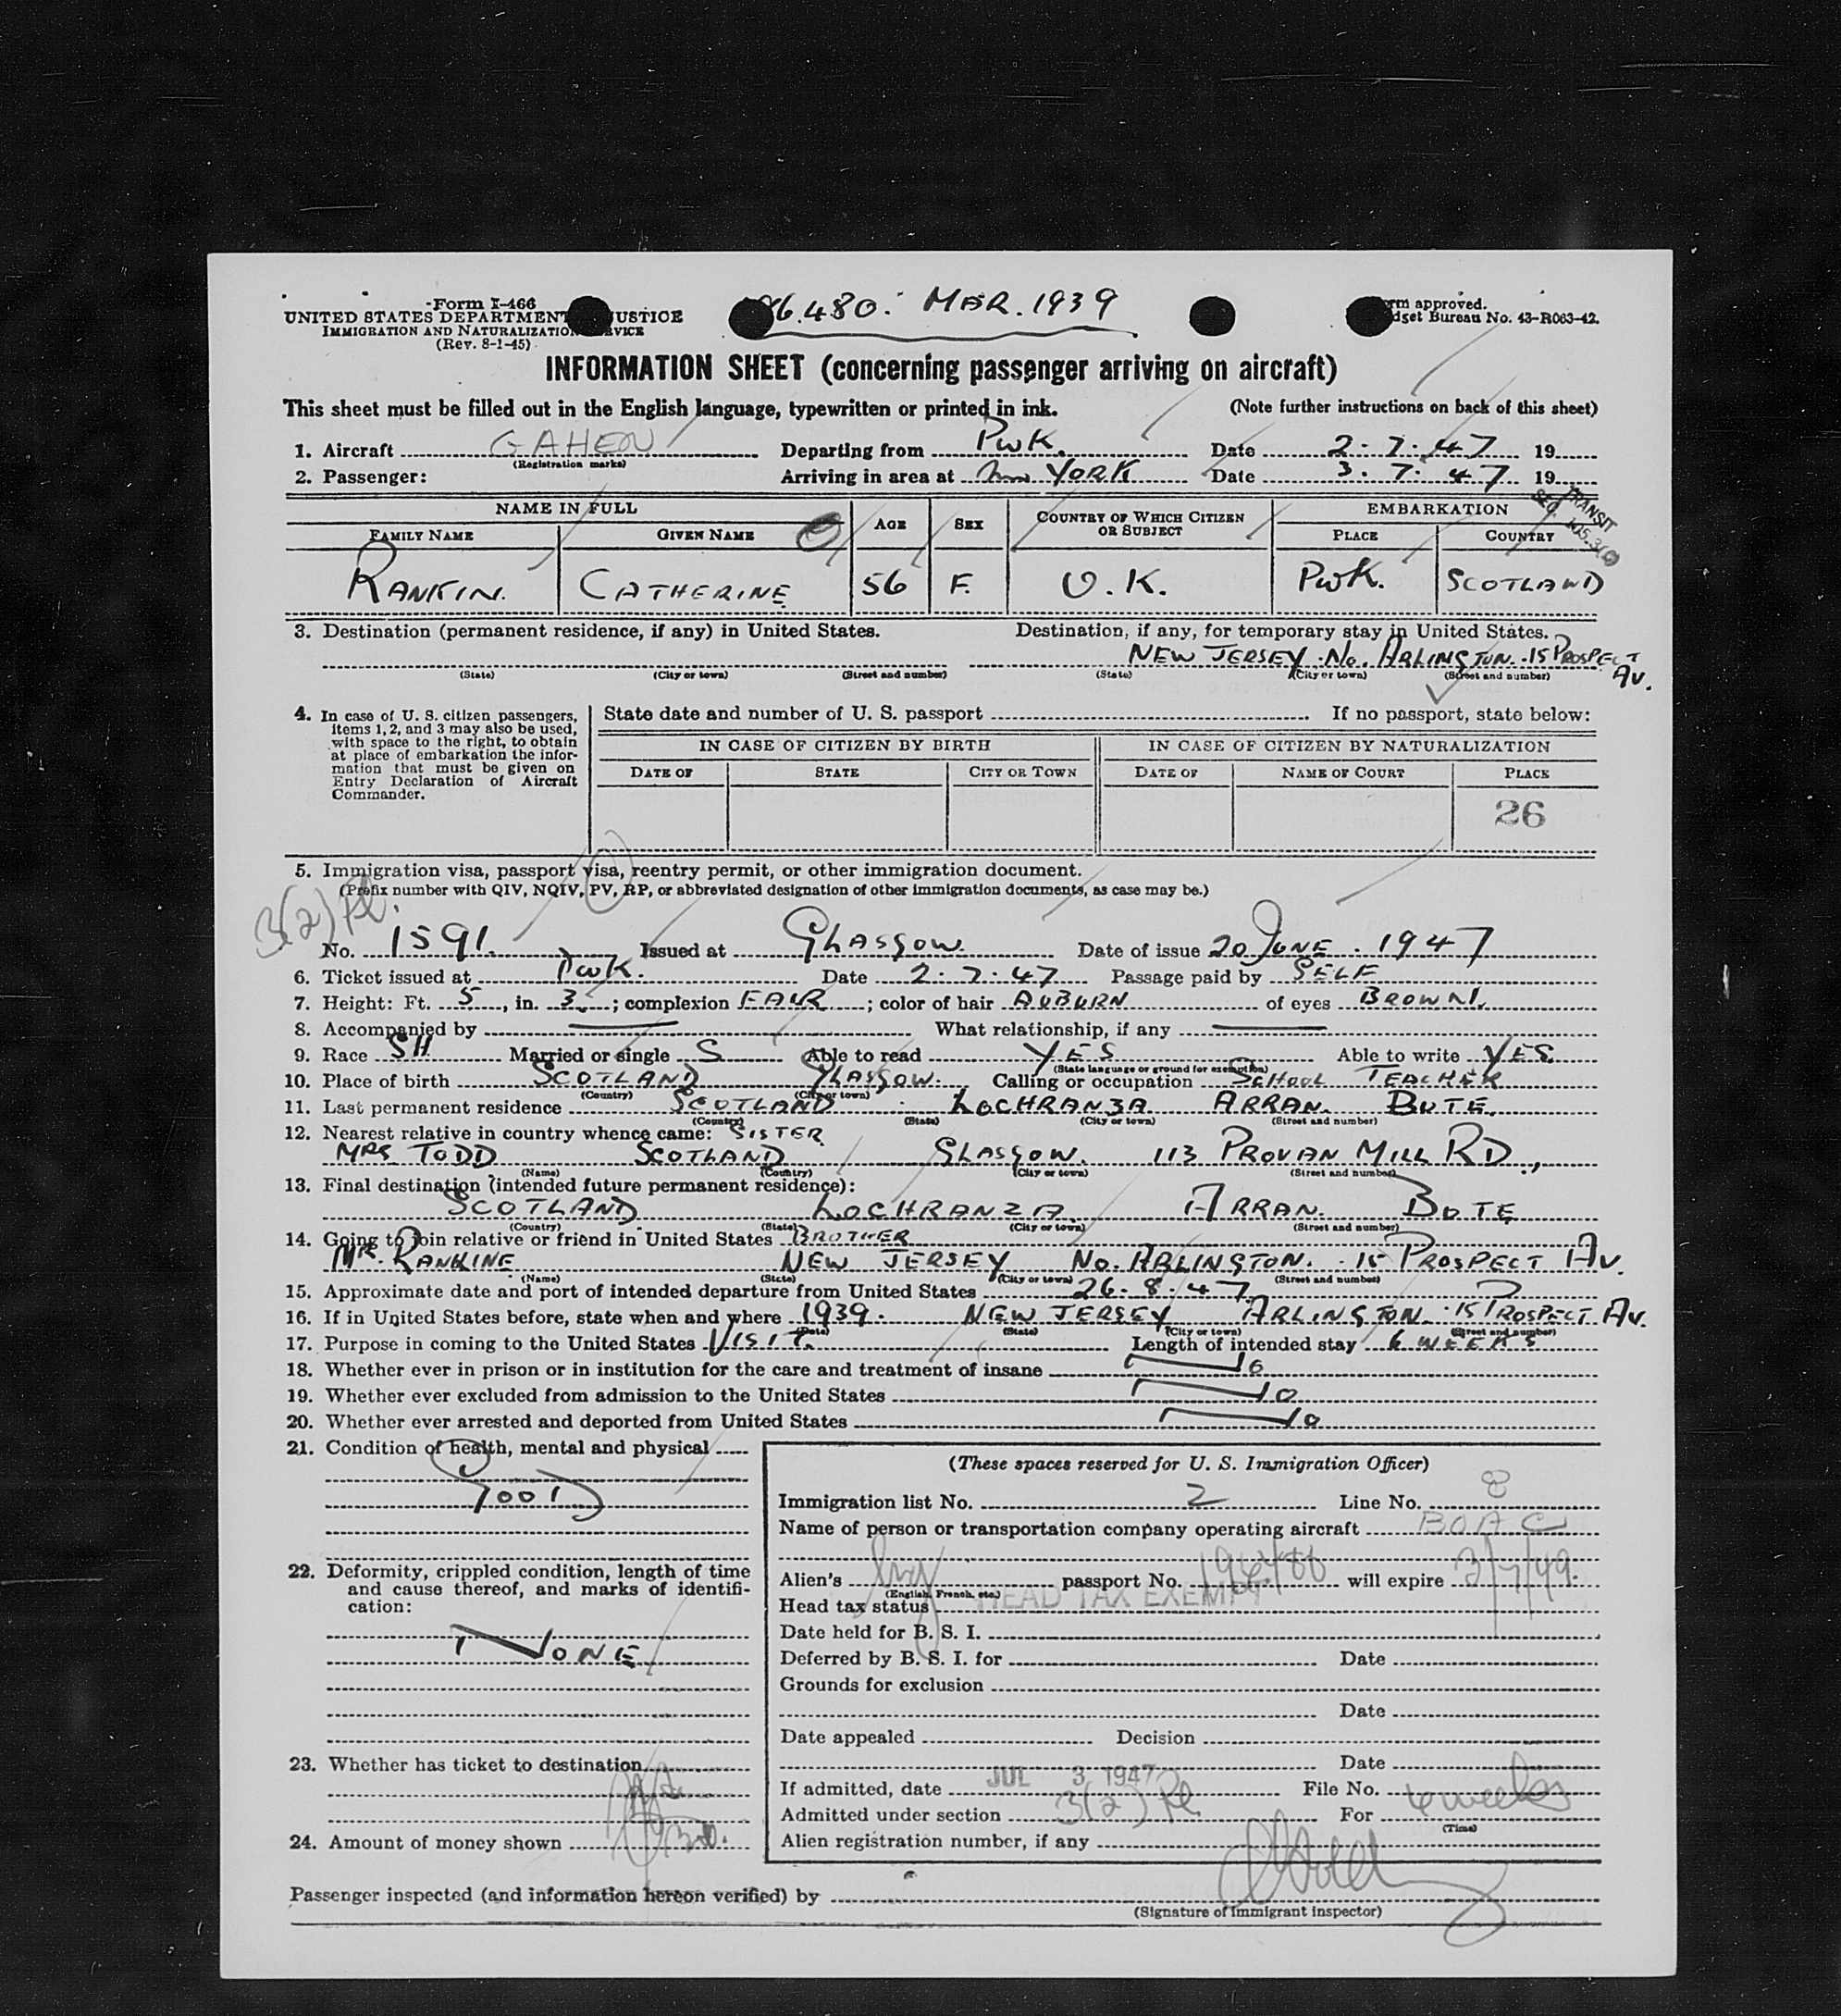 Form I-466
UNITED STATES DEPARTMENT JUSTICE
IMMIGRATION AND NATURALIZATION SERVICE
(Rev. 8-1-45)
6.480. MAR. 1939
Form approved.
Budget Bureau No. 43-R063-42.
INFORMATION SHEET (concerning passenger arriving on aircraft)
This sheet must be filled out in the English language, typewritten or printed in ink. (Note further instructions on back of this sheet)
1. Aircraft GAHEN Departing from PWK. Date 2.7.47 19
(Registration marks)
2. Passenger: Arriving in area at YORK Date 3.7.47 19
TRANSIT
NAME IN FULL AGE SEX COUNTRY OF WHICH CITIZEN OR SUBJECT EMBARKATION
FAMILY NAME GIVEN NAME PLACE COUNTRY
RANKIN. CATHERINE 56 F. U.K. PWK. SCOTLAND
3. Destination (permanent residence, if any) in United States. Destination, if any, for temporary stay in United States.
NEW JERSEY. No. ARLINGTON. 15 PROSPECT AV.
(State) (City or town) (Street and number) (State) (City or town) (Street and number)
4. In case of U. S. citizen passengers, items 1, 2, and 3 may also be used, with space to the right, to obtain at place of embarkation the information that must be given on Entry Declaration of Aircraft Commander.
State date and number of U. S. passport If no passport, state below:
IN CASE OF CITIZEN BY BIRTH IN CASE OF CITIZEN BY NATURALIZATION
DATE OF STATE CITY OR TOWN DATE OF NAME OF COURT PLACE
26
5. Immigration visa, passport visa, reentry permit, or other immigration document.
(Prefix number with QIV, NQIV, PV, RP, or abbreviated designation of other immigration documents, as case may be.)
3(2) Pl.
No. 1591. Issued at GLASGOW. Date of issue 20 JUNE. 1947
6. Ticket issued at PWK. Date 2.7.47 Passage paid by SELF
7. Height: Ft. 5, in. 3; complexion FAIR; color of hair AUBURN of eyes BROWN.
8. Accompanied by — What relationship, if any —
9. Race SH Married or single S Able to read YES Able to write YES
(State language or ground for exemption)
10. Place of birth SCOTLAND GLASGOW. Calling or occupation SCHOOL TEACHER
(Country) (City or town)
11. Last permanent residence SCOTLAND LOCHRANZA ARRAN. BUTE.
(Country) (State) (City or town) (Street and number)
12. Nearest relative in country whence came: SISTER
MRS TODD SCOTLAND GLASGOW. 113 PROVAN MILL RD.,
(Name) (Country) (City or town) (Street and number)
13. Final destination (intended future permanent residence):
SCOTLAND LOCHRANZA. ARRAN. BUTE
(Country) (State) (City or town) (Street and number)
14. Going to join relative or friend in United States BROTHER
MR. RANKINE NEW JERSEY No. ARLINGTON. 15 PROSPECT AV.
(Name) (State) (City or town) (Street and number)
15. Approximate date and port of intended departure from United States 26.8.47. ?
16. If in United States before, state when and where 1939. NEW JERSEY ARLINGTON. 15 PROSPECT AV.
(Date) (State) (City or town) (Street and number)
17. Purpose in coming to the United States VISIT. Length of intended stay 6 WEEKS
18. Whether ever in prison or in institution for the care and treatment of insane No
19. Whether ever excluded from admission to the United States No
20. Whether ever arrested and deported from United States No
21. Condition of health, mental and physical
GOOD
22. Deformity, crippled condition, length of time and cause thereof, and marks of identification:
NONE
23. Whether has ticket to destination
24. Amount of money shown
(These spaces reserved for U. S. Immigration Officer)
Immigration list No. 2 Line No. 8
Name of person or transportation company operating aircraft BOAC
Alien's passport No. will expire 3/7/49.
(English, French, etc.)
Head tax status HEAD TAX EXEMPT
Date held for B. S. I.
Deferred by B. S. I. for Date
Grounds for exclusion
Date
Date appealed Decision
Date
If admitted, date JUL 3 1947 File No.
Admitted under section 3(2) Pl. For 6 weeks
(Time)
Alien registration number, if any
Passenger inspected (and information hereon verified) by
(Signature of immigrant inspector)